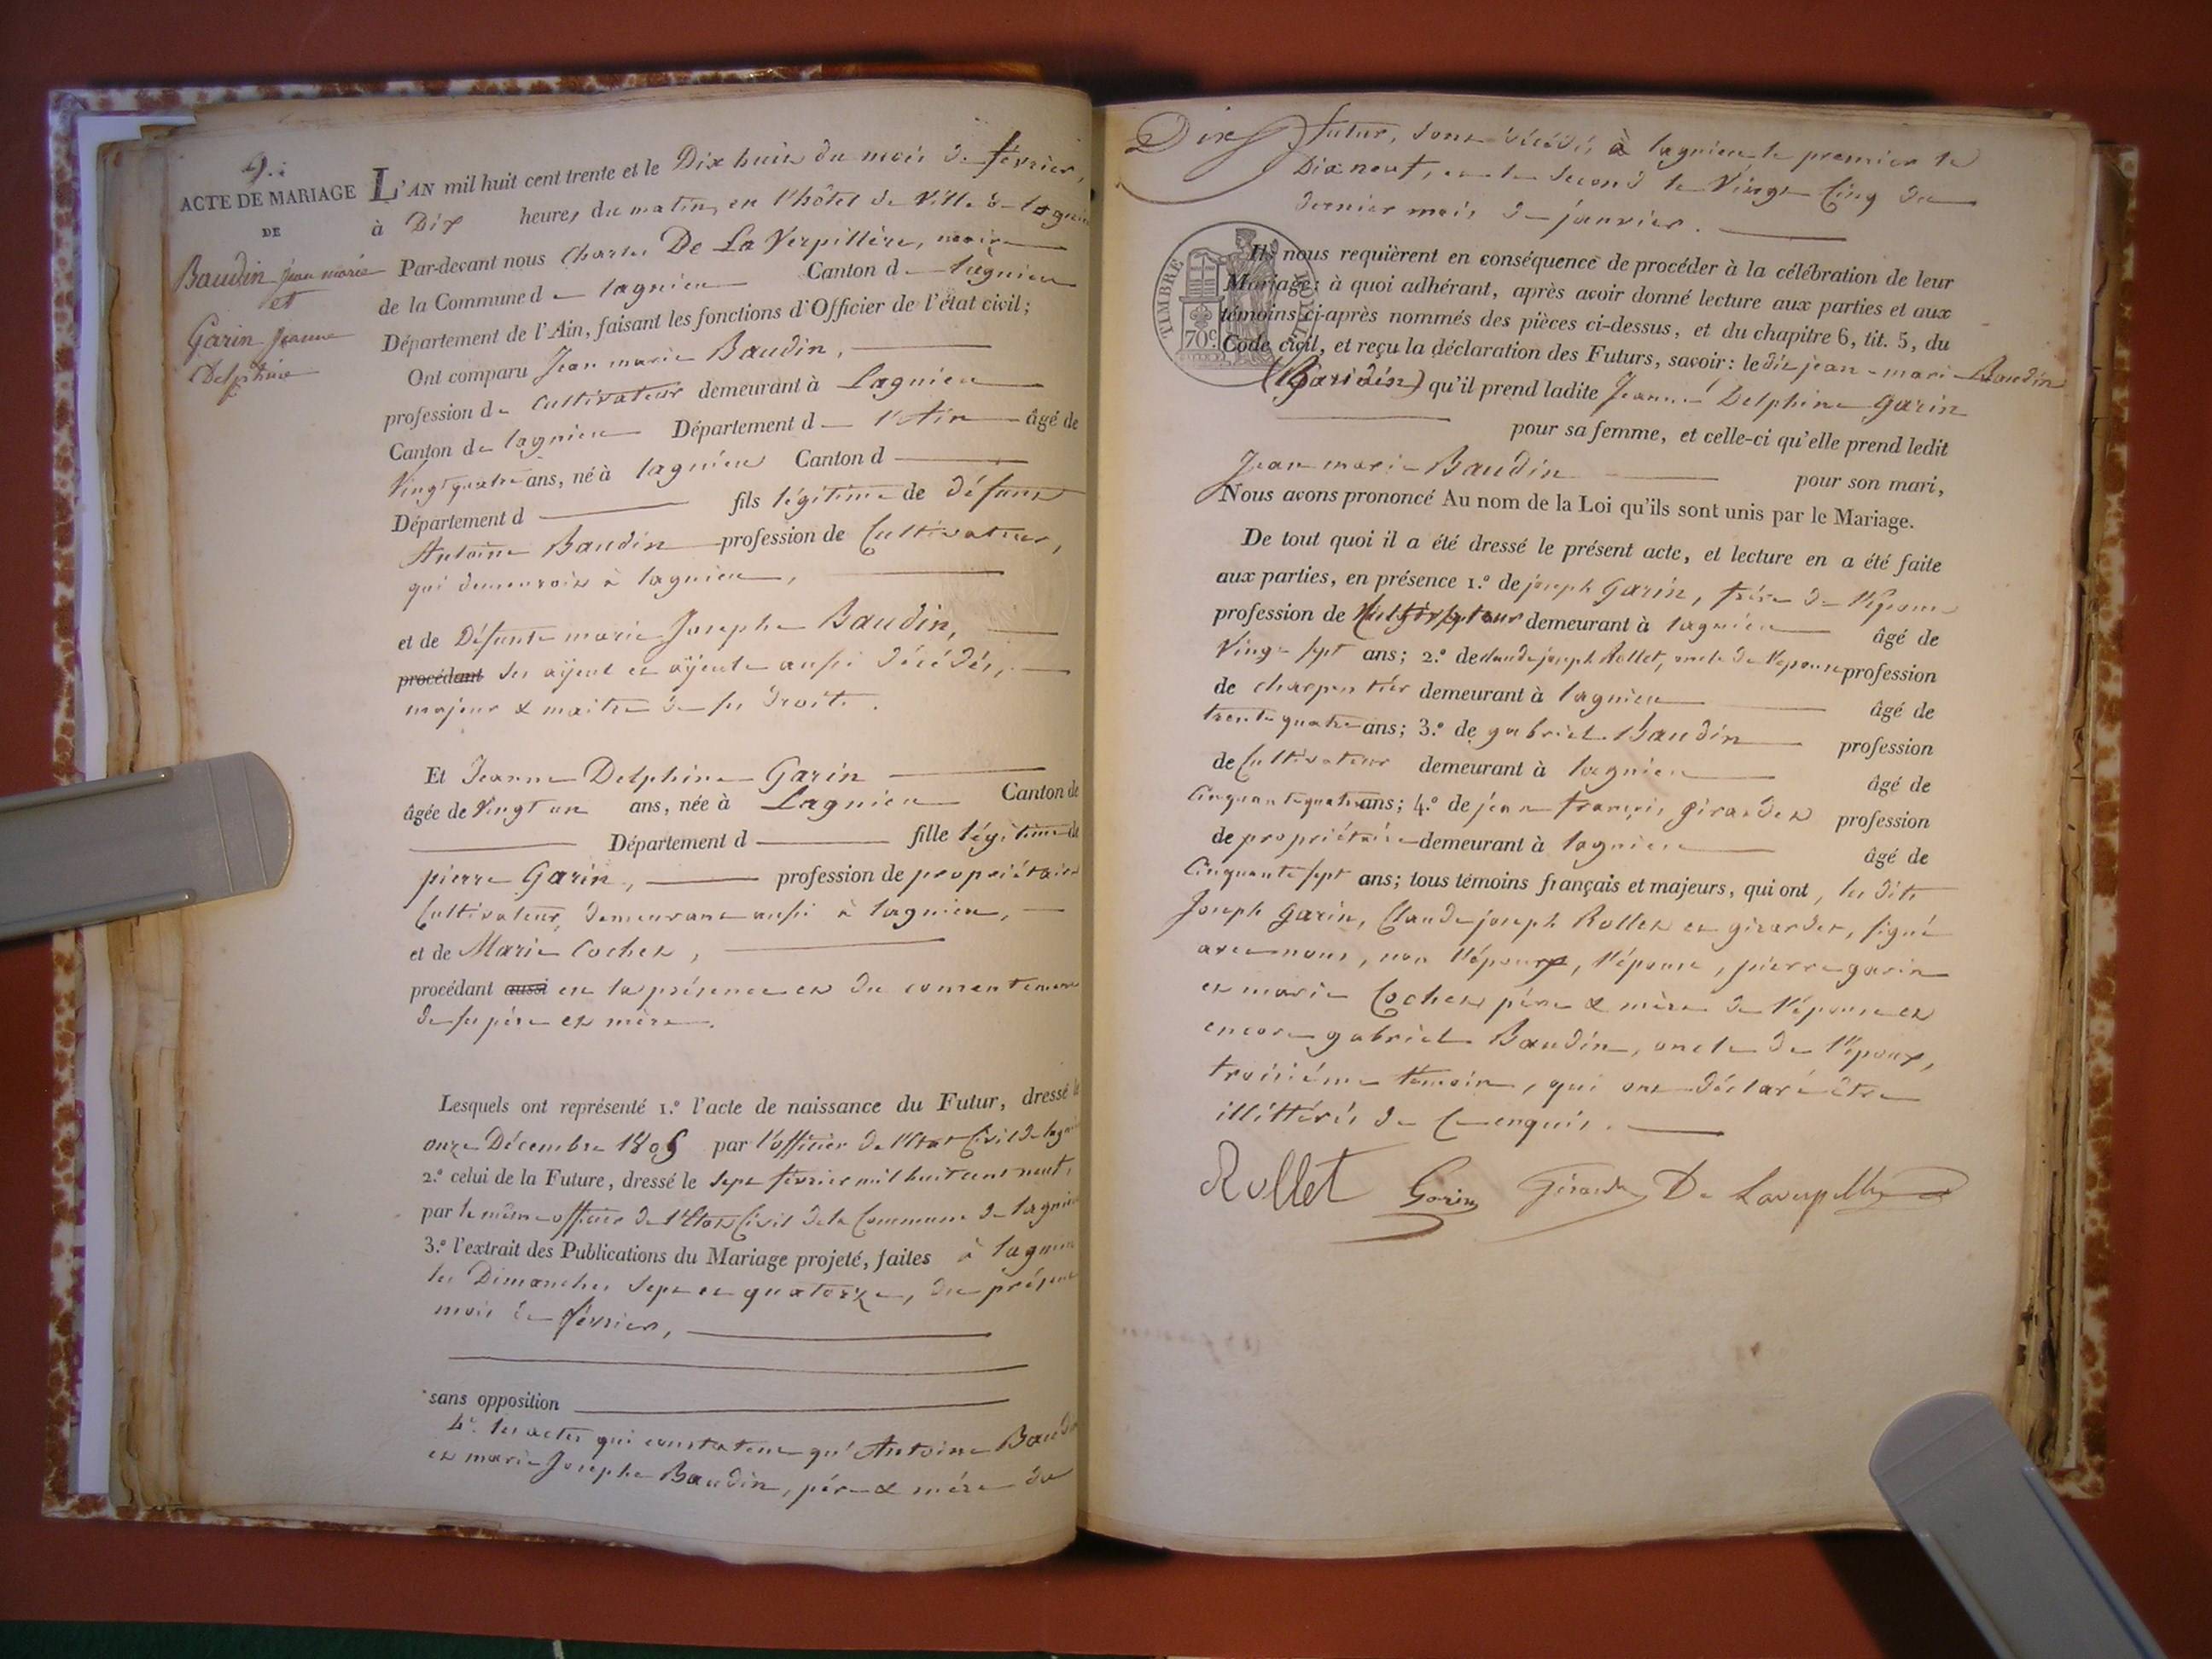 9.
ACTE DE MARIAGE
DE
Baudin jean marie
et
Garin Jeanne
Delphine
L'AN mil huit cent trente et le Dix huit du mois de février,
à Dix heures du matin, en l'hôtel de Ville de lagnieu
Par-devant nous Charles De La Verpillière, maire
de la Commune de lagnieu Canton de lagnieu
Département de l'Ain, faisant les fonctions d'Officier de l'état civil;
Ont comparu Jean marie Baudin,
profession de Cultivateur demeurant à Lagnieu
Canton de lagnieu Département de l'Ain âgé de
Vingt quatre ans, né à lagnieu Canton d
Département d fils légitime de défunt
Antoine Baudin profession de Cultivateur,
qui demeuroit à lagnieu,
et de Défunte marie Josephe Baudin,
procédant ses ayeul et ayeule aussi décédés,
majeur & maitre de ses droits.
Et Jeanne Delphine Garin
âgée de Vingt un ans, née à Lagnieu Canton de
Département d fille légitime de
pierre Garin, profession de propriétaire
Cultivateur, demeurant aussi à lagnieu,
et de Marie Cochet,
procédant aussi en la présence et du consentement
de ses père et mère.
Lesquels ont représenté 1.º l'acte de naissance du Futur, dressé le
onze Décembre 1805 par l'officier de l'Etat Civil de lagnieu
2.º celui de la Future, dressé le sept février mil huit cent neuf,
par le même officier de l'Etat Civil de la Commune de lagnieu
3.º l'extrait des Publications du Mariage projeté, faites à lagnieu
les Dimanches sept et quatorze, du présent
mois de février,
sans opposition
4.º les actes qui constatent qu'Antoine Baudin
et marie Josephe Baudin, père & mère du
Dix futur, sont décédés à lagnieu le premier le
Dix neuf, et le second le Vingt Cinq du
dernier mois de janvier.
TIMBRE ROYAL
70c.
Ils nous requièrent en conséquence de procéder à la célébration de leur
Mariage: à quoi adhérant, après avoir donné lecture aux parties et aux
témoins ci-après nommés des pièces ci-dessus, et du chapitre 6, tit. 5, du
Code civil, et reçu la déclaration des Futurs, savoir: le dit jean-marie Baudin
qu'il prend ladite Jeanne Delphine Garin
pour sa femme, et celle-ci qu'elle prend ledit
Jean marie Baudin pour son mari,
Nous avons prononcé Au nom de la Loi qu'ils sont unis par le Mariage.
De tout quoi il a été dressé le présent acte, et lecture en a été faite
aux parties, en présence 1.º de joseph Garin, frère de l'épouse
profession de Cultivateur demeurant à lagnieu âgé de
Vingt sept ans; 2.º de claude joseph Rollet, oncle de l'epouse profession
de charpentier demeurant à lagnieu âgé de
trente quatre ans; 3.º de gabriel Baudin profession
de Cultivateur demeurant à lagnieu âgé de
Cinquante quatre ans; 4.º de jean françois girardet profession
de propriétaire demeurant à lagnieu âgé de
Cinquante sept ans; tous témoins français et majeurs, qui ont, les dits
Joseph Garin, Claude joseph Rollet et girardet, signé
avec nous, non l'époux, l'épouse, pierre garin
et marie Cochet père & mère de l'épouse et
encore gabriel Baudin, oncle de l'époux,
troisième témoin, qui ont déclaré être
illittérés de Ce enquis.
Rollet Garin Girardet De Laverpillière